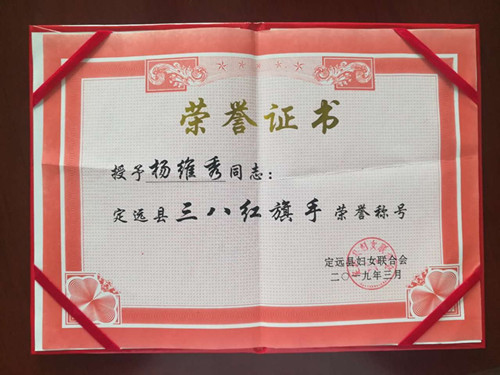 荣誉证书
授予杨维秀同志：
定远县三八红旗手荣誉称号
定远县妇女联合会
二〇一九年三月